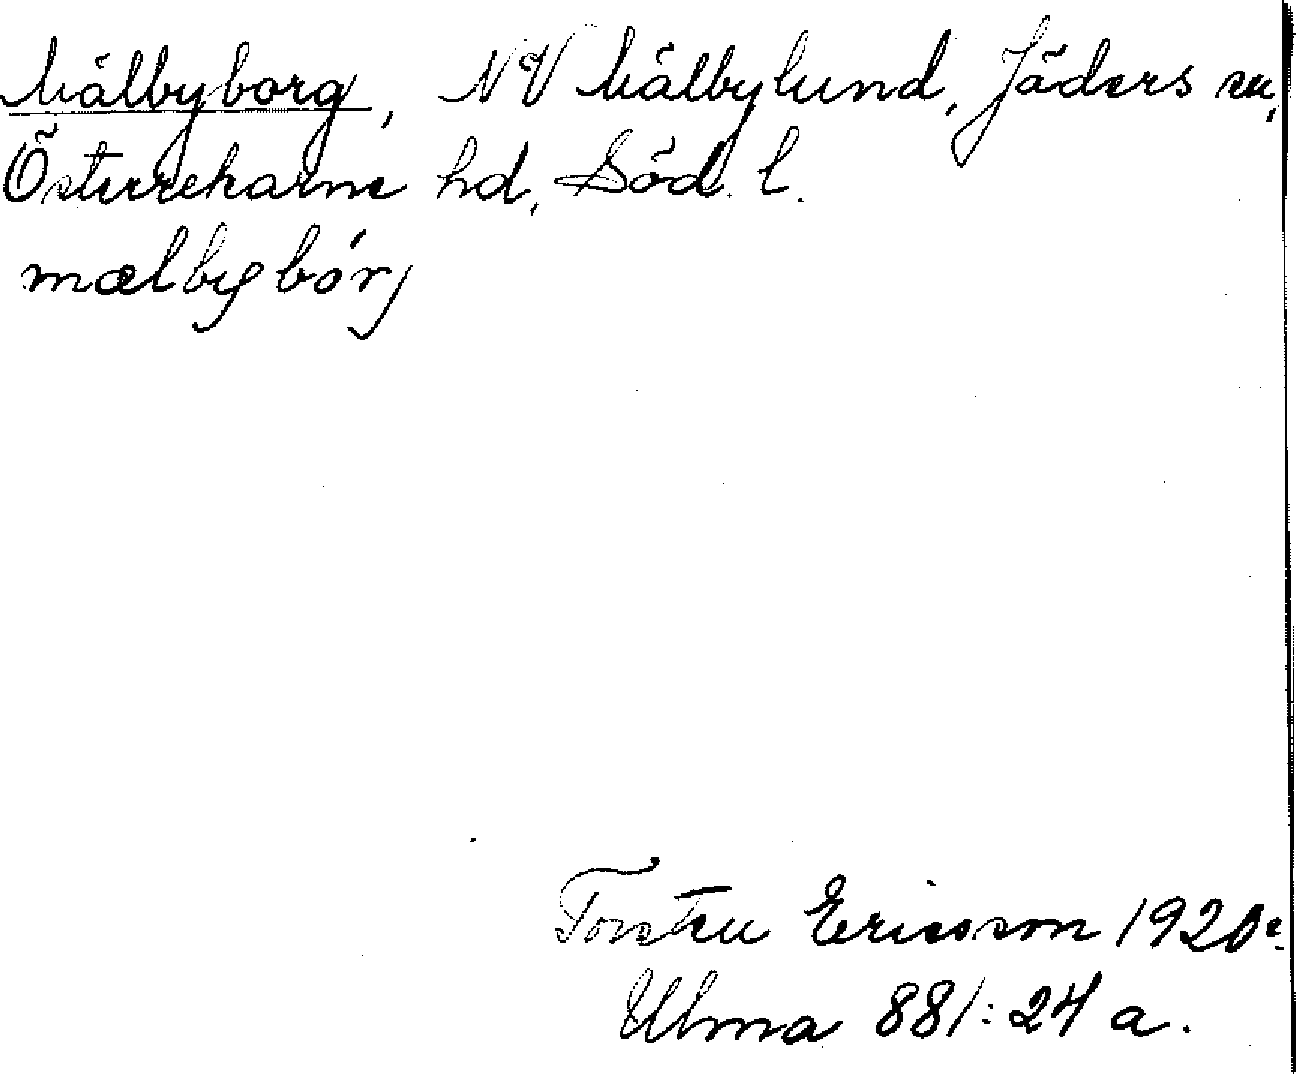 Mälbyborg, NV Mälbylund, Jäders sn,
Österrekarne hd, Söd. l.
mælbybórj
Torsten Ericsson 1920
Ulma 881:24 a.